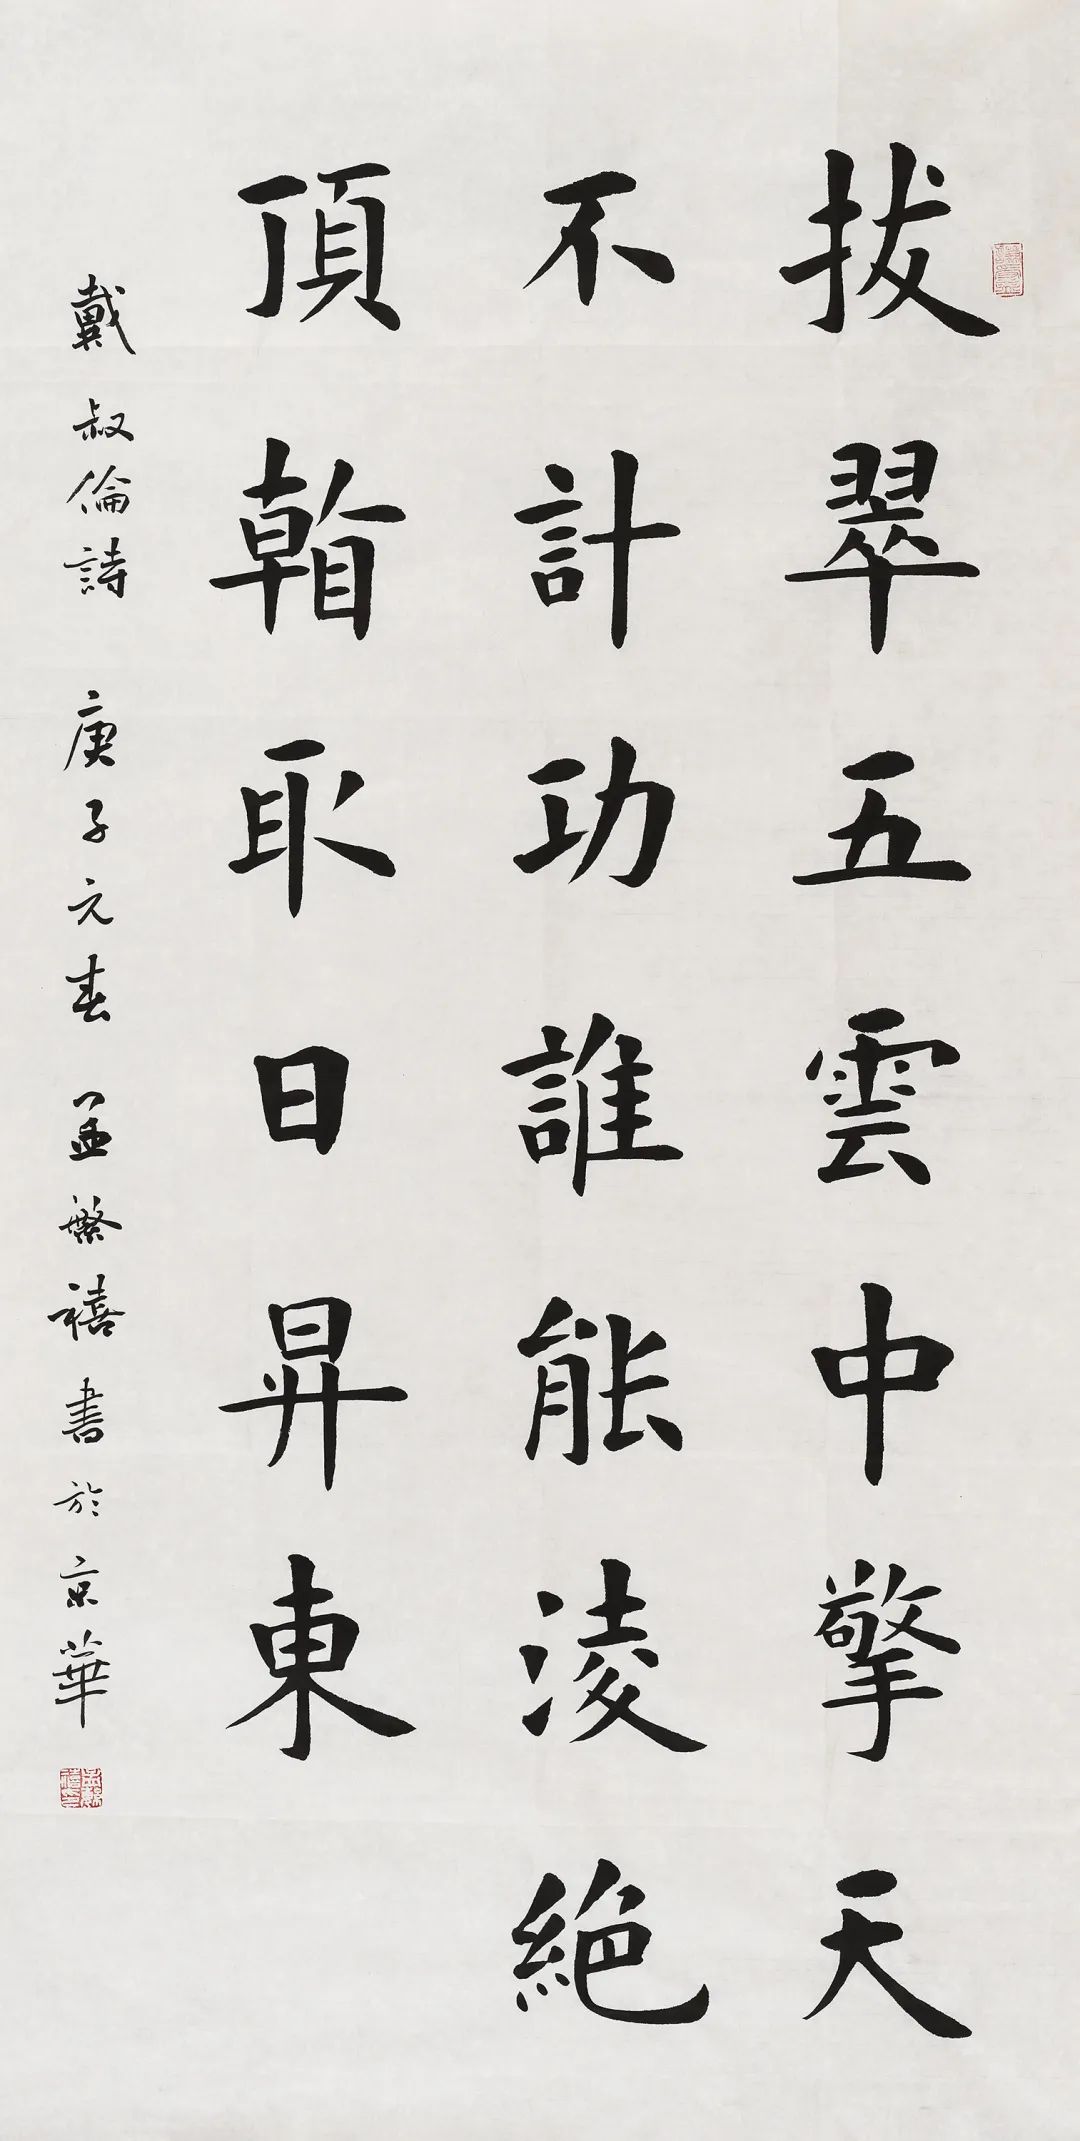 拔翠五雲中擎天
不計功誰能淩絕
頂看取日昇東
戴叔倫詩 庚子元春 孟繁禧書於京華